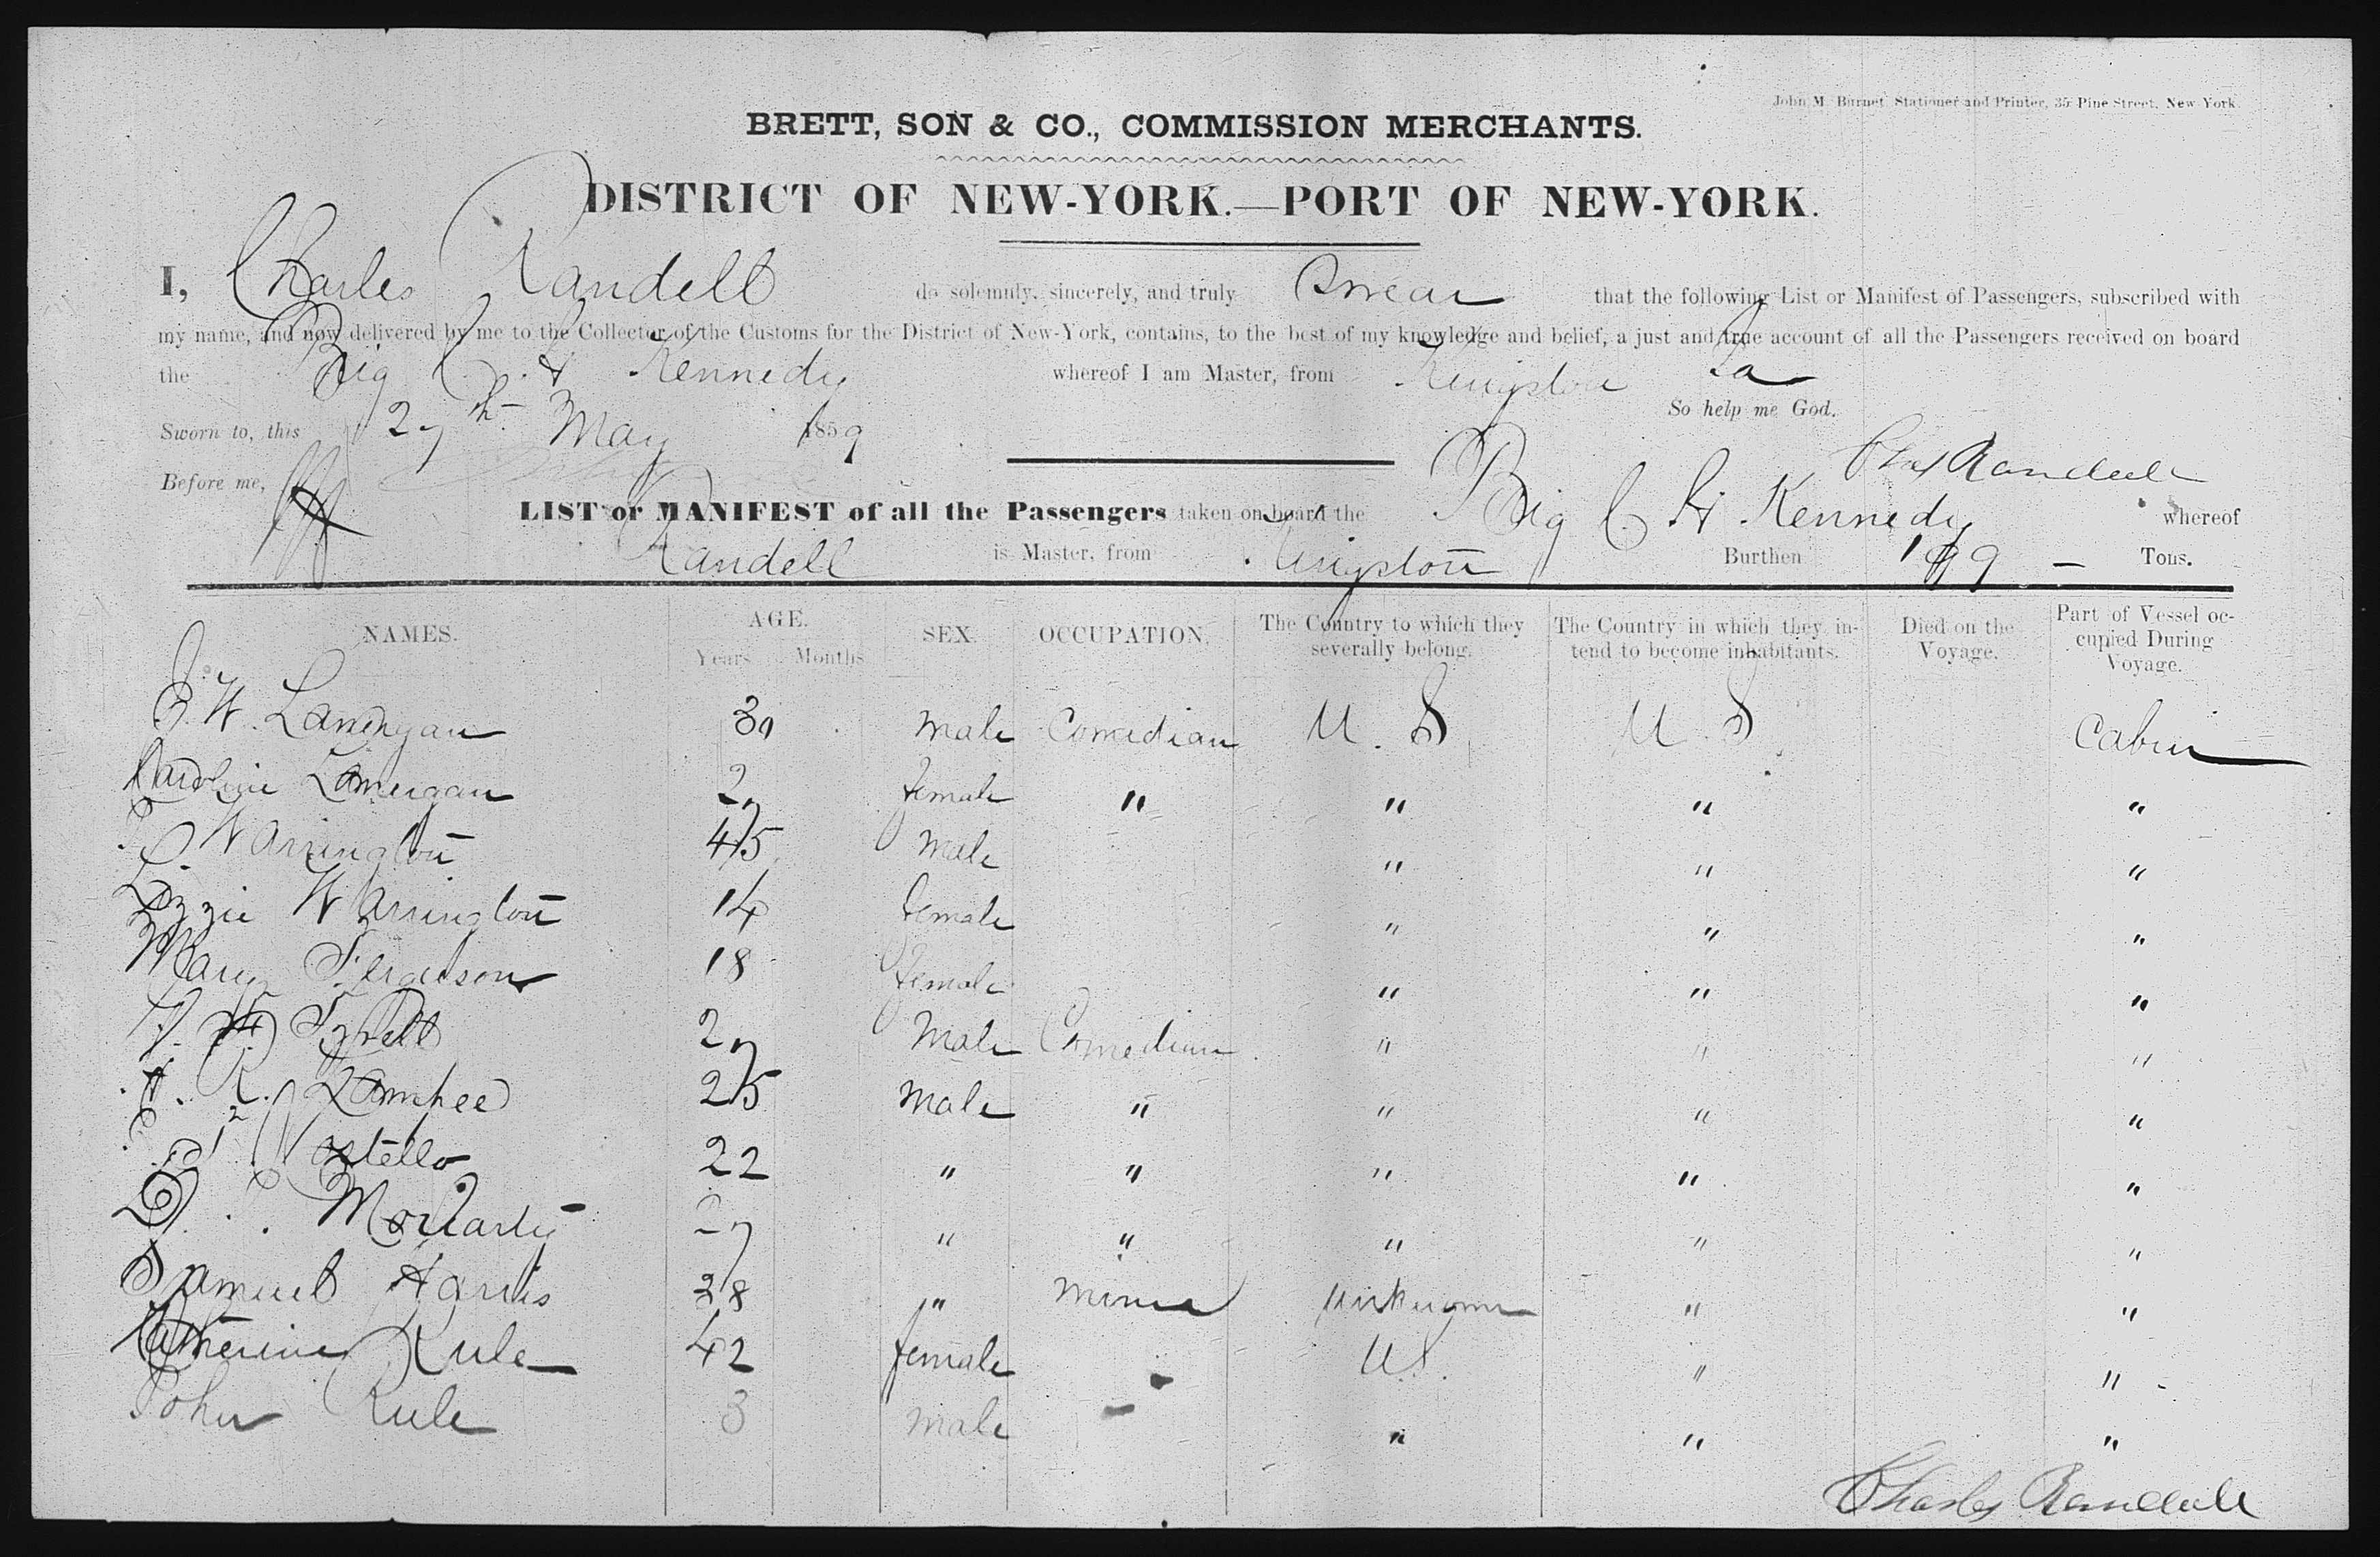 John M. Burnet, Stationer and Printer, 35 Pine Street, New York.
BRETT, SON & CO., COMMISSION MERCHANTS.
DISTRICT OF NEW-YORK.—PORT OF NEW-YORK.
I, Charles Randell do solemnly, sincerely, and truly Swear that the following List or Manifest of Passengers, subscribed with
my name, and now delivered by me to the Collector of the Customs for the District of New-York, contains, to the best of my knowledge and belief, a just and true account of all the Passengers received on board
the Brig C. H Kennedy whereof I am Master, from Kingston Ja
So help me God.
Sworn to, this 27th May 1859
Chas Randell
Before me,
LIST or MANIFEST of all the Passengers taken on board the Brig C H Kennedy whereof
Randell is Master, from Kingston Burthen 199 — Tons.
NAMES. AGE. Years Months SEX. OCCUPATION. The Country to which they severally belong. The Country in which they intend to become inhabitants. Died on the Voyage. Part of Vessel occupied During Voyage.
J. W. Lannergan 30 male Comedian U. S U. S Cabin
Caroline Lanergan 27 female " " " "
Warrington 45 male " " "
Lizzie Warrington 14 female " " "
Mary Ferguson 18 female " " "
Tyrell 27 Male Comedian " " "
R. Lamhee 25 male " " " "
Costello 22 " " " " "
D. Moriarty 27 " " " " "
Samuel Harris 38 " miner Unknown " "
Catherine Rule 42 female U S. " "
John Rule 3 male " " "
Charles Randell